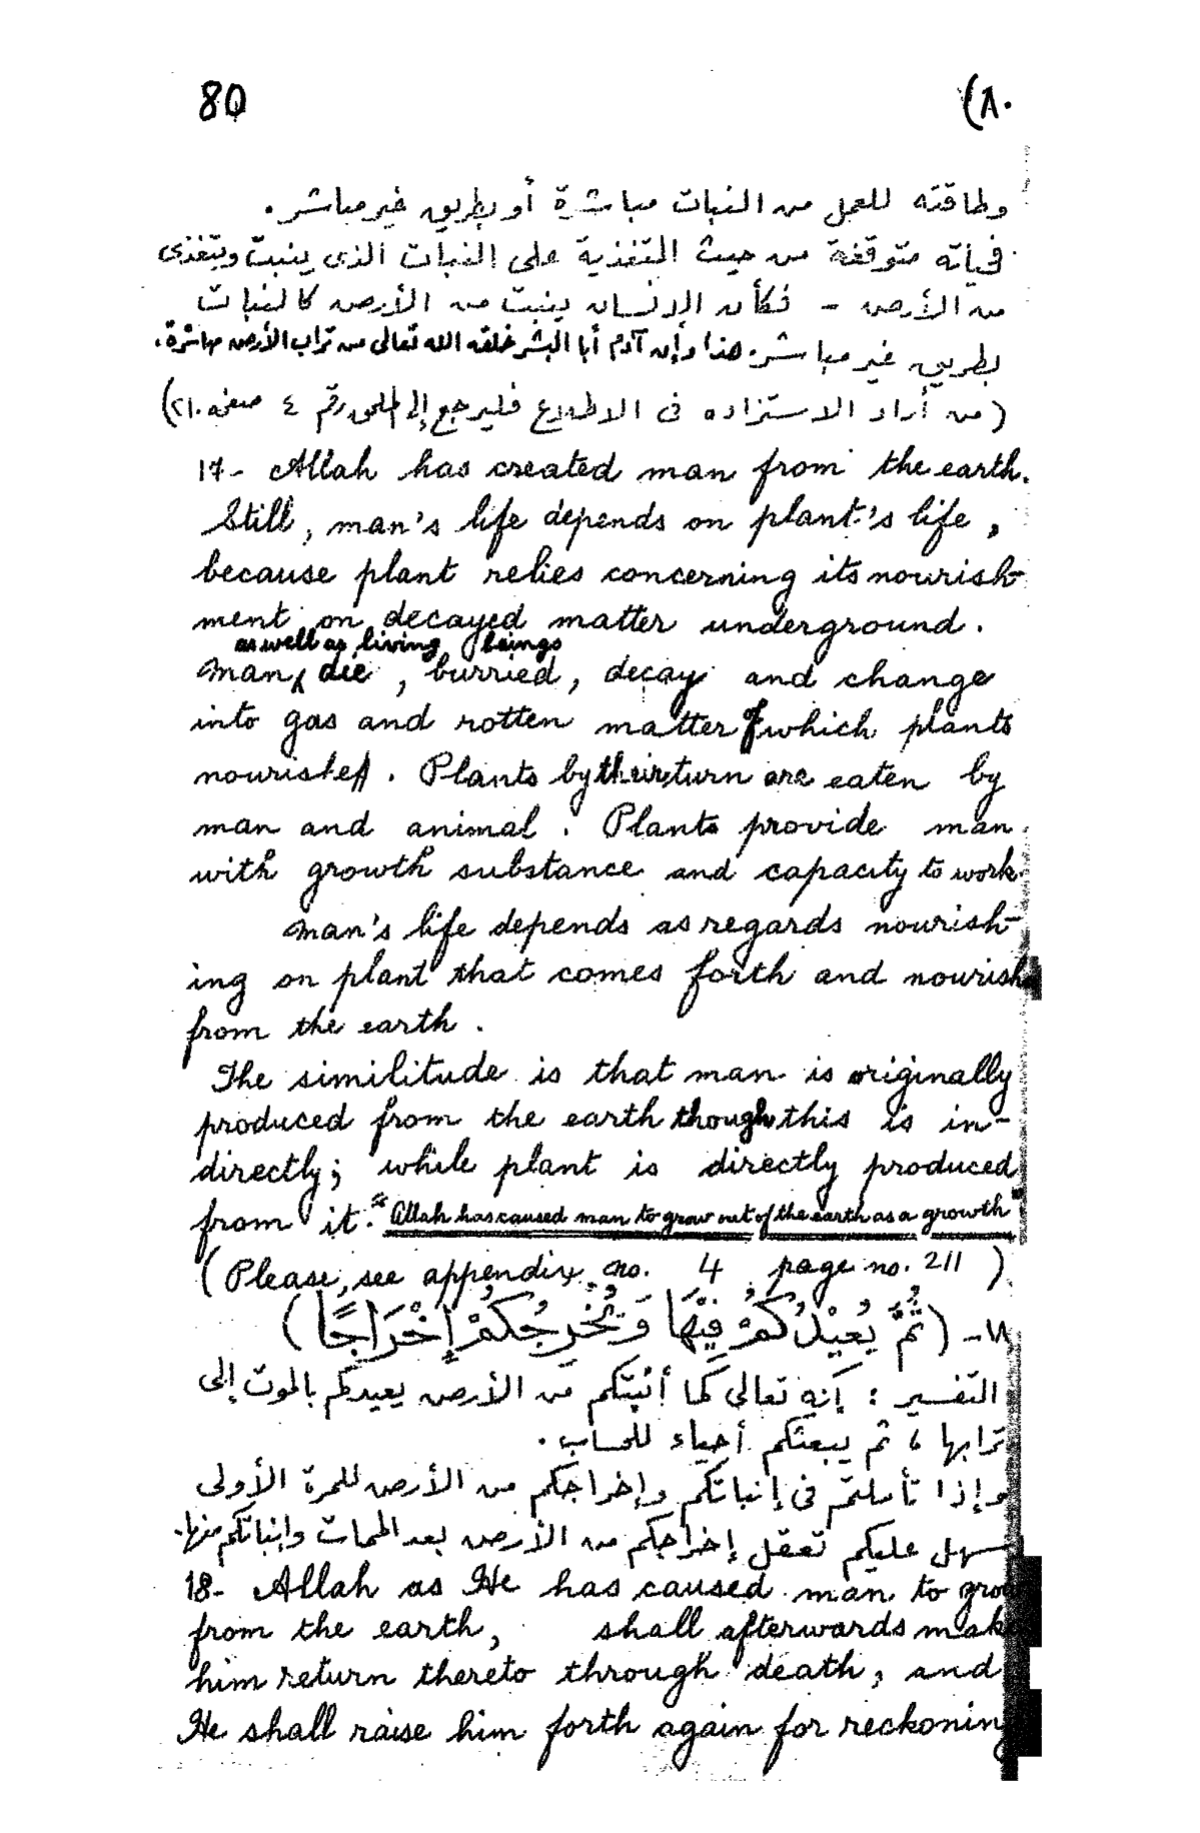 80 (٨٠
وطاقته للعمل من النبات مباشرة أو بطريق غير مباشر .
فحياته متوقفة من حيث التغذية على النبات الذى ينبت ويتغذى
من الأرض - فكأن الإنسان ينبت من الأرض كالنبات
بطريق غير مباشر . هذا وإن آدم أبا البشر خلقه الله تعالى من تراب الأرض مباشرة .
(من أراد الاستزاده فى الاطلاع فليرجع إلى الملحق رقم ٤ صفحه ٢١٠)
17- Allah has created man from the earth.
Still, man's life depends on plant's life,
because plant relies concerning its nourish-
ment on decayed matter underground.
as well as living beings
Man, die, burried, decay and change
into gas and rotten matter of which plants
nourishes. Plants by their turn are eaten by
man and animal. Plants provide man
with growth substance and capacity to work.
Man's life depends as regards nourish-
ing on plant that comes forth and nourish
from the earth.
The similitude is that man is originally
produced from the earth though this is in-
directly; while plant is directly produced
from it. "Allah has caused man to grow out of the earth as a growth"
(Please, see appendix no. 4 page no. 211)
١٨- (ثُمَّ يُعِيْدُكُمْ فِيْهَا وَيُخْرِجُكُمْ إِخْرَاجًا)
التفسير : إنه تعالى كما أنبتكم من الأرض يعيدكم بالموت إلى
ترابها ، ثم يبعثكم أحياء للحساب .
وإذا تأملتم فى إنباتكم وإخراجكم من الأرض للمرة الأولى
سهل عليكم تعقل إخراجكم من الأرض بعد الممات وإنباتكم منها .
18- Allah as He has caused man to grow
from the earth, shall afterwards make
him return thereto through death, and
He shall raise him forth again for reckoning